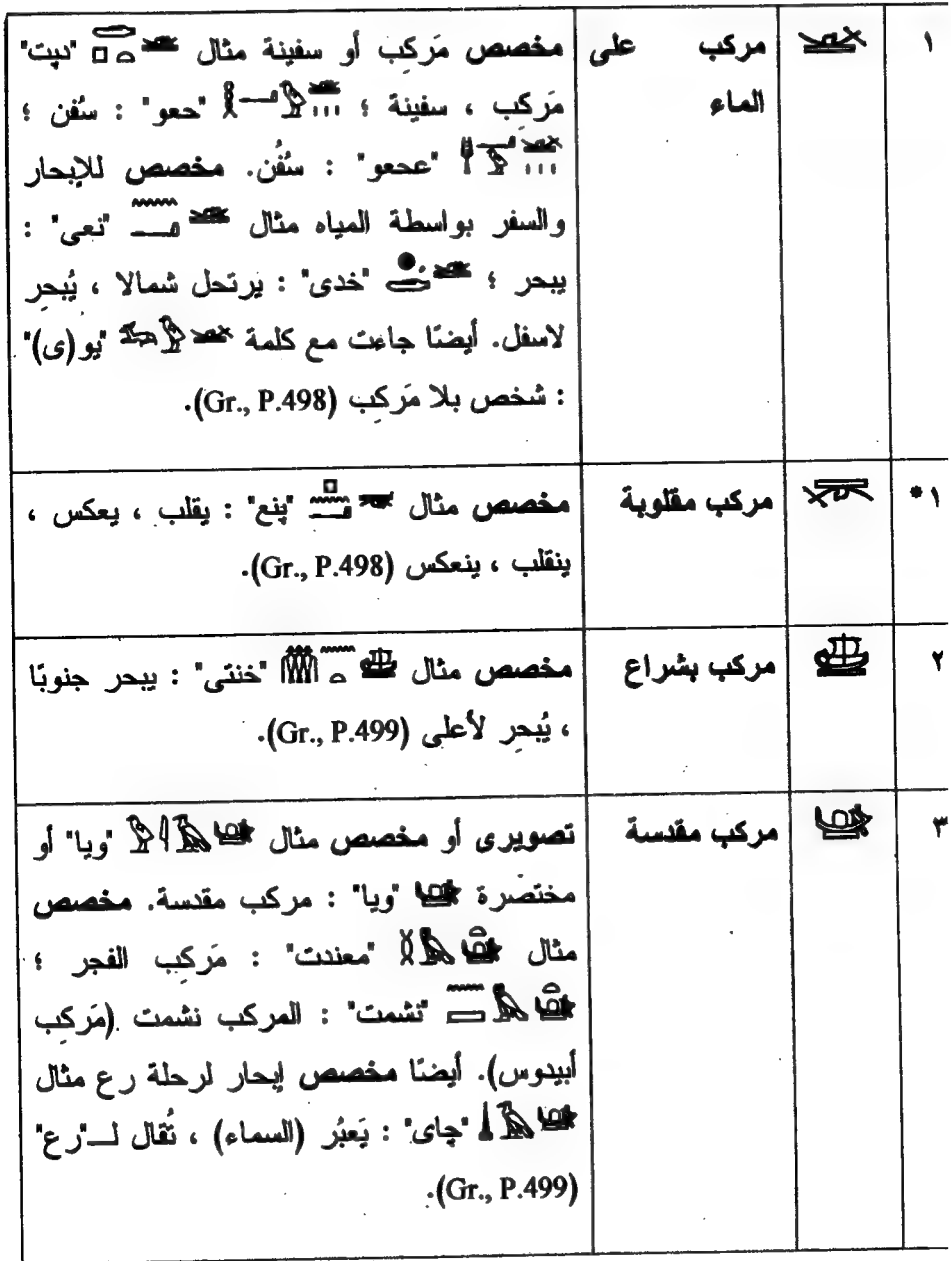 ١ مركب على مخصص مَركِب أو سفينة مثال "دپت"
الماء مَركِب ، سفينة ؛ "حعو" : سُفن ؛
"عحعو" : سُفُن. مخصص للإبحار
والسفر بواسطة المياه مثال "نعى" :
يبحر ؛ "خدى" : يرتحل شمالا ، يُبحِر
لاسفل. أيضًا جاءت مع كلمة "يو(ى)"
: شخص بلا مَركِب (Gr., P.498).
١* مركب مقلوبة مخصص مثال "پنع" : يقلب ، يعكس ،
ينقلب ، ينعكس (Gr., P.498).
٢ مركب بشراع مخصص مثال "خنتى" : يبحر جنوبًا
، يُبحِر لأعلى (Gr., P.499).
٣ مركب مقدسة تصويرى أو مخصص مثال "ويا" أو
مختصرة "ويا" : مركب مقدسة. مخصص
مثال "معندت" : مَركِب الفجر ؛
"نشمت" : المركب نشمت (مَركِب
أبيدوس). أيضًا مخصص إبحار لرحلة رع مثال
"چاى" : يَعبُر (السماء) ، تُقال لـ"رع"
(Gr., P.499).